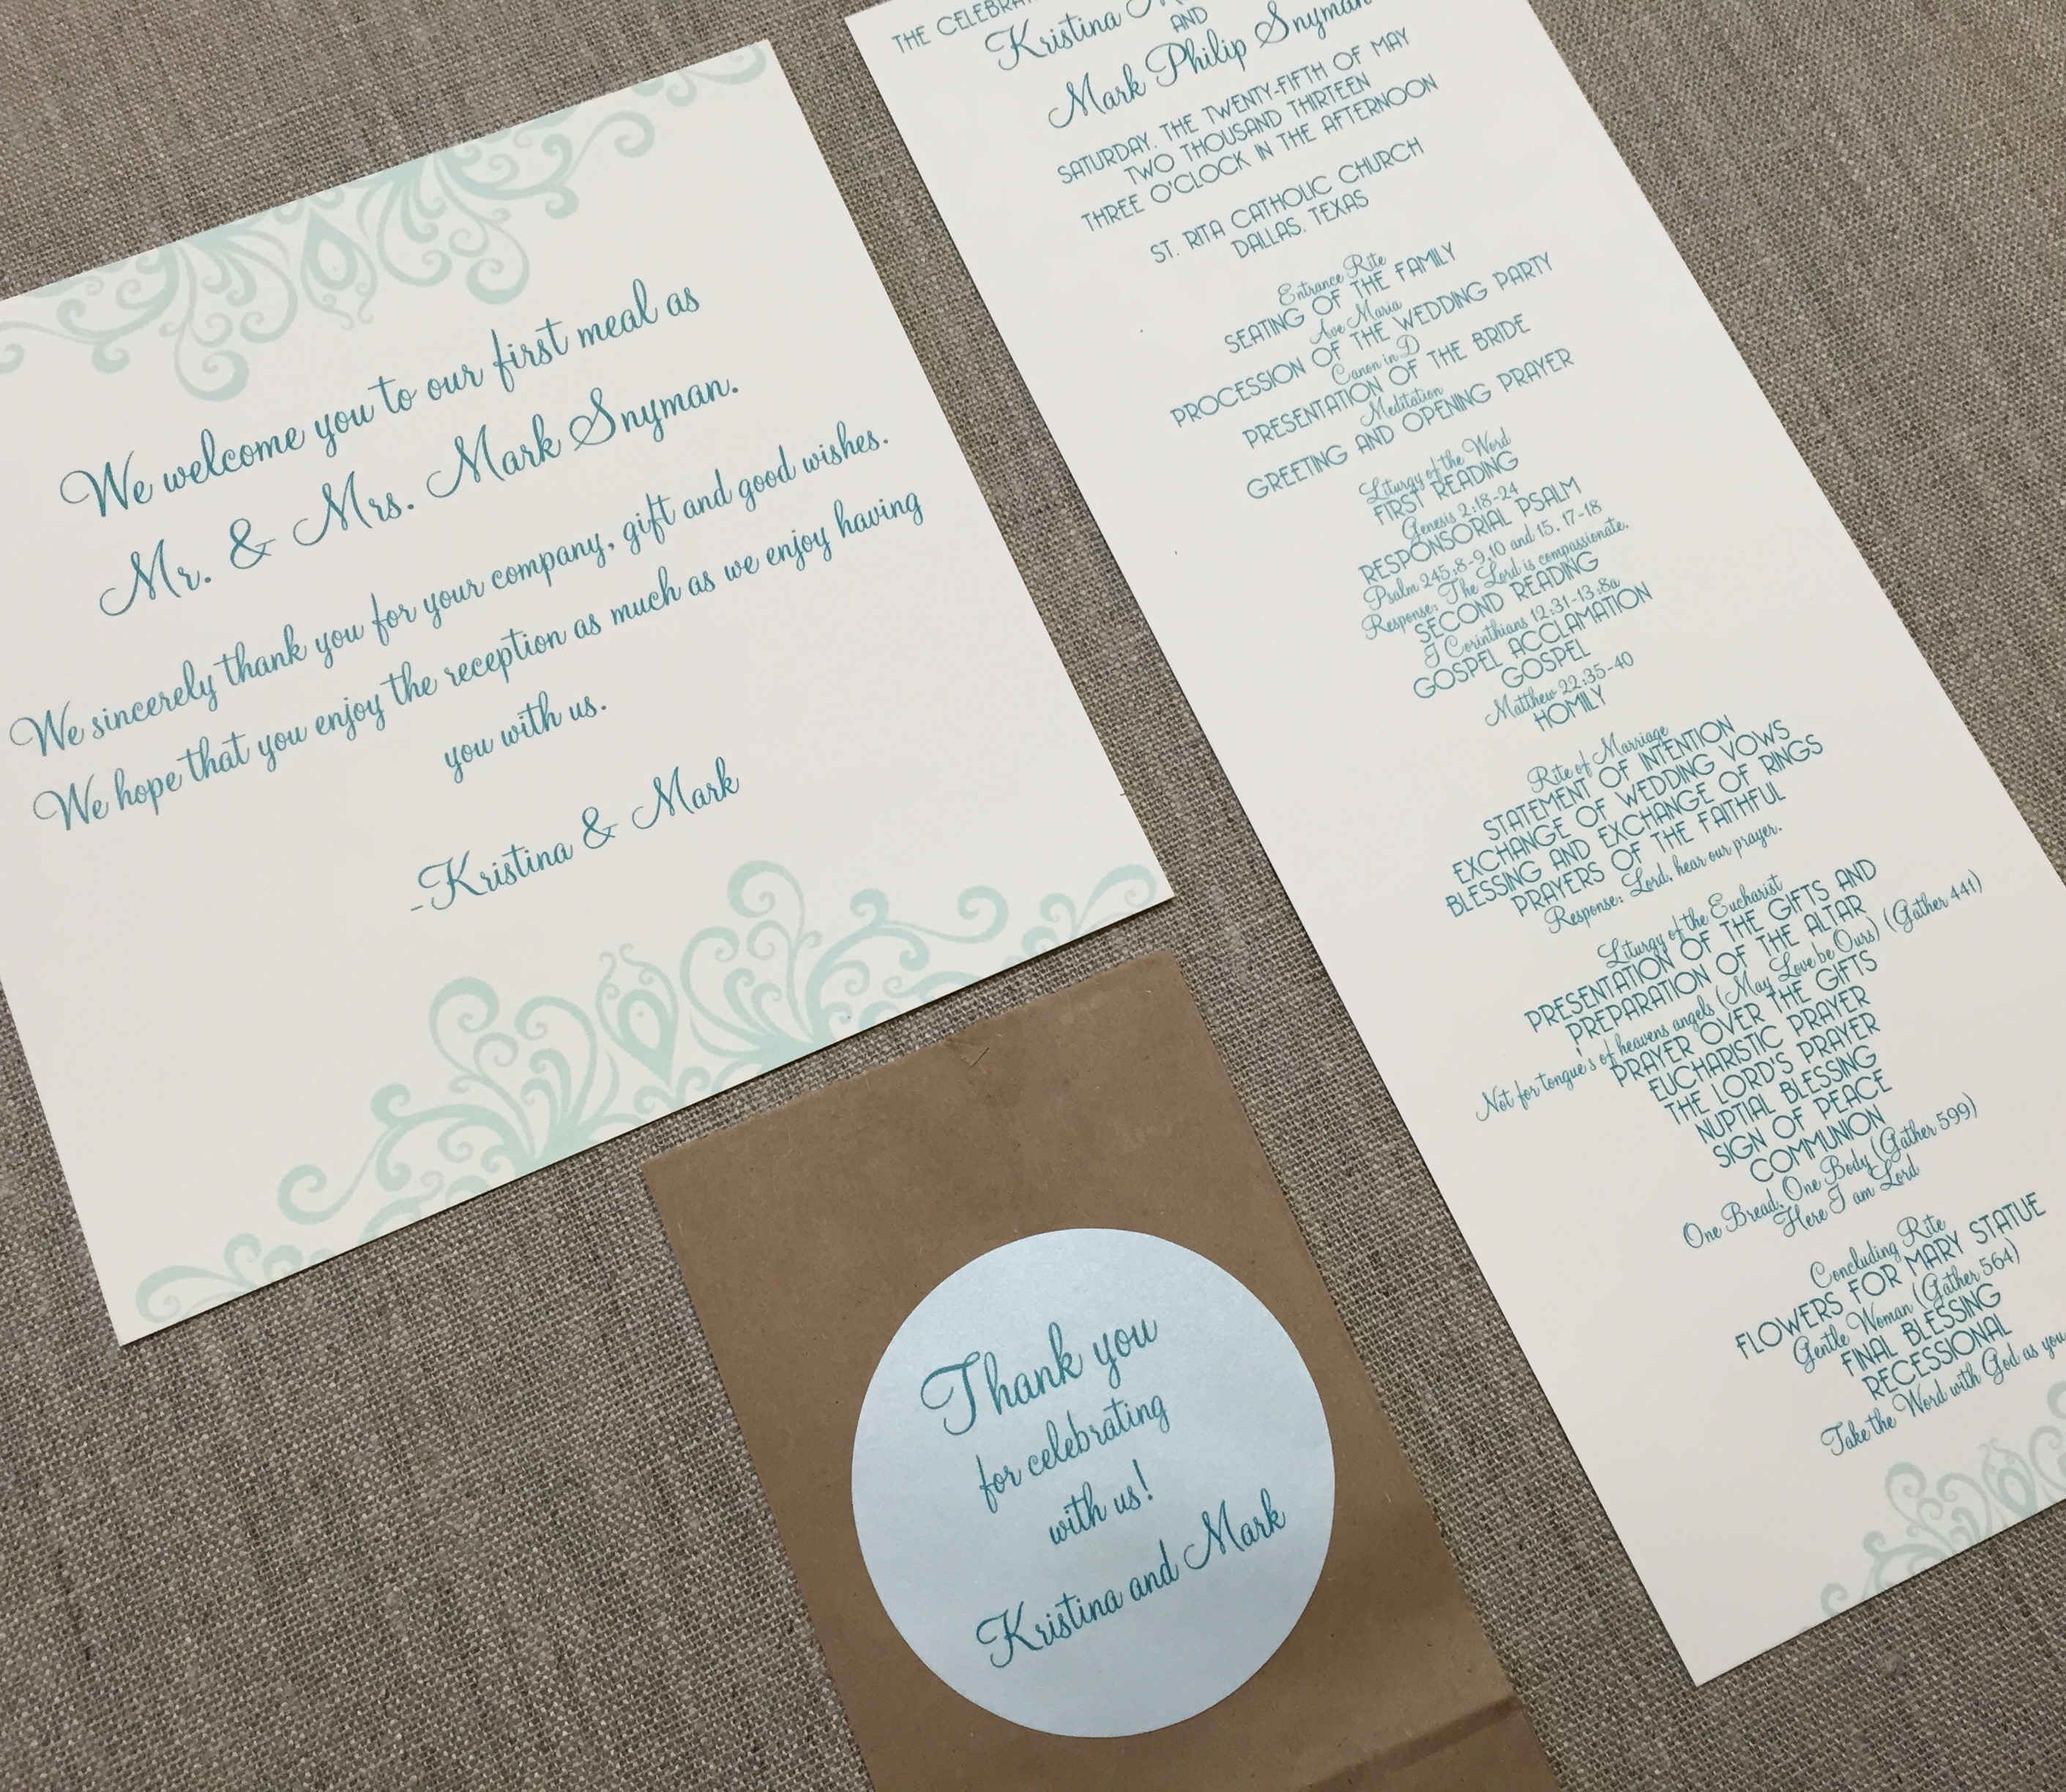 We welcome you to our first meal as
Mr. & Mrs. Mark Snyman.
We sincerely thank you for your company, gift and good wishes.
We hope that you enjoy the reception as much as we enjoy having
you with us.
-Kristina & Mark
THE
Kristina
AND
Mark Philip Snyman
SATURDAY, THE TWENTY-FIFTH OF MAY
TWO THOUSAND THIRTEEN
THREE O'CLOCK IN THE AFTERNOON
ST. RITA CATHOLIC CHURCH
DALLAS, TEXAS
Entrance Rite
SEATING OF THE FAMILY
Ave Maria
PROCESSION OF THE WEDDING PARTY
Canon in D
PRESENTATION OF THE BRIDE
Meditation
GREETING AND OPENING PRAYER
Liturgy of the Word
FIRST READING
Genesis 2:18-24
RESPONSORIAL PSALM
Psalm 245:8-9,10 and 15, 17-18
Response: The Lord is compassionate.
SECOND READING
I Corinthians 12:31-13:8a
GOSPEL ACCLAMATION
GOSPEL
Matthew 22:35-40
HOMILY
Rite of Marriage
STATEMENT OF INTENTION
EXCHANGE OF WEDDING VOWS
BLESSING AND EXCHANGE OF RINGS
PRAYERS OF THE FAITHFUL
Response: Lord, hear our prayer.
Liturgy of the Eucharist
PRESENTATION OF THE GIFTS AND
PREPARATION OF THE ALTAR
Not for tongue's of heavens angels (May Love be Ours) (Gather 441)
PRAYER OVER THE GIFTS
EUCHARISTIC PRAYER
THE LORD'S PRAYER
NUPTIAL BLESSING
SIGN OF PEACE
COMMUNION
One Bread, One Body (Gather 599)
Here I am Lord
Concluding Rite
FLOWERS FOR MARY STATUE
Gentle Woman (Gather 564)
FINAL BLESSING
RECESSIONAL
Take the Word with God as you
Thank you
for celebrating
with us!
Kristina and Mark